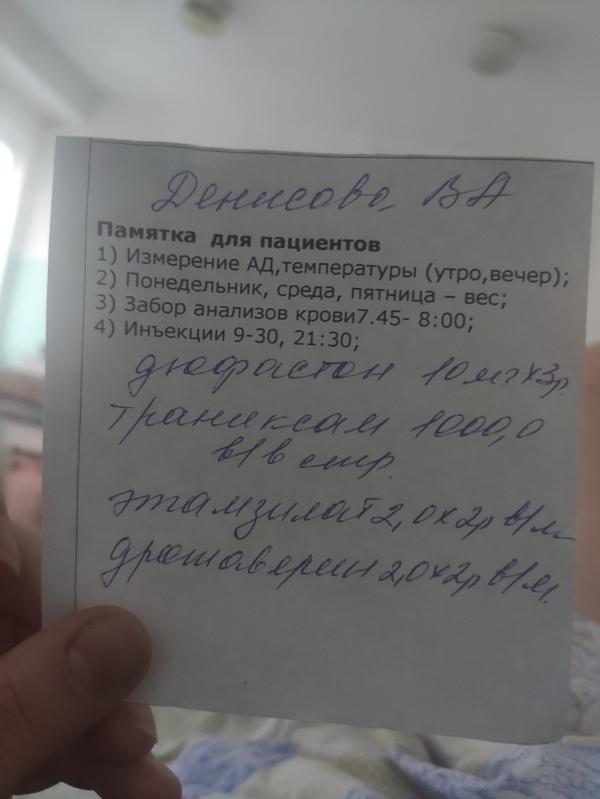 Денисова ВА
Памятка для пациентов
1) Измерение АД,температуры (утро,вечер);
2) Понедельник, среда, пятница – вес;
3) Забор анализов крови7.45- 8:00;
4) Инъекции 9-30, 21:30;
дюфастон 10 мг х3р.
траниксам 1000,0
в/в стр.
этамзилат 2,0х2р в/м
дротаверин 2,0х2р в/м.